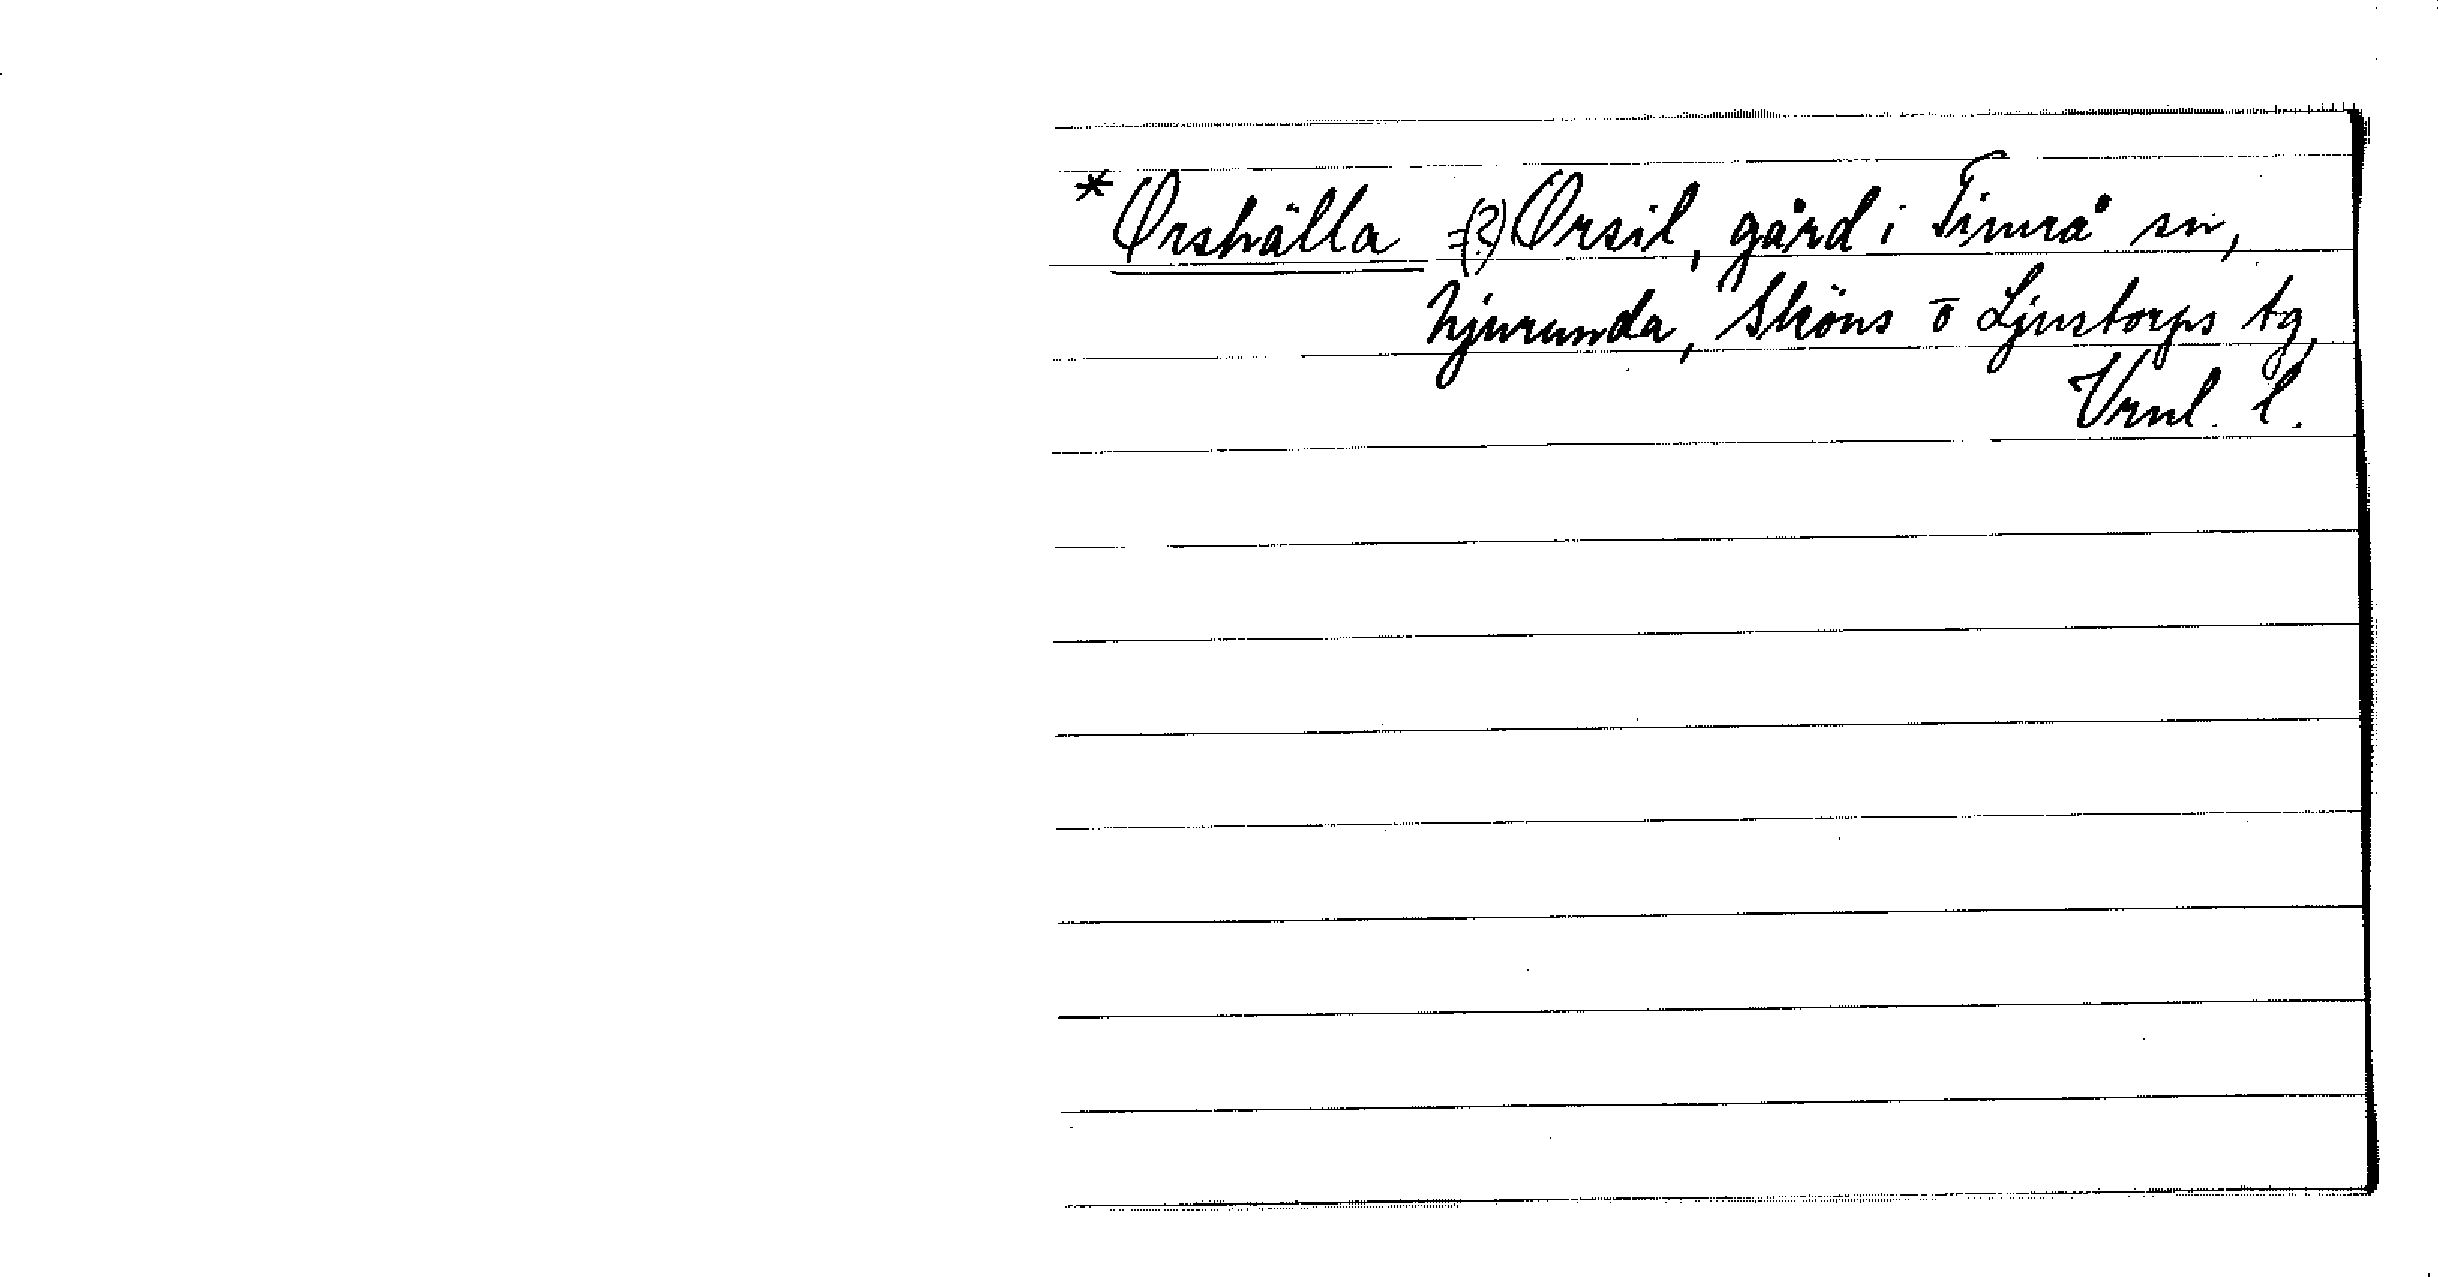 *Ørshälla =(?) Ørsil, gård i Timrå sn,
Njurunda, Sköns o Ljustorps tg,
Vrnl. l.